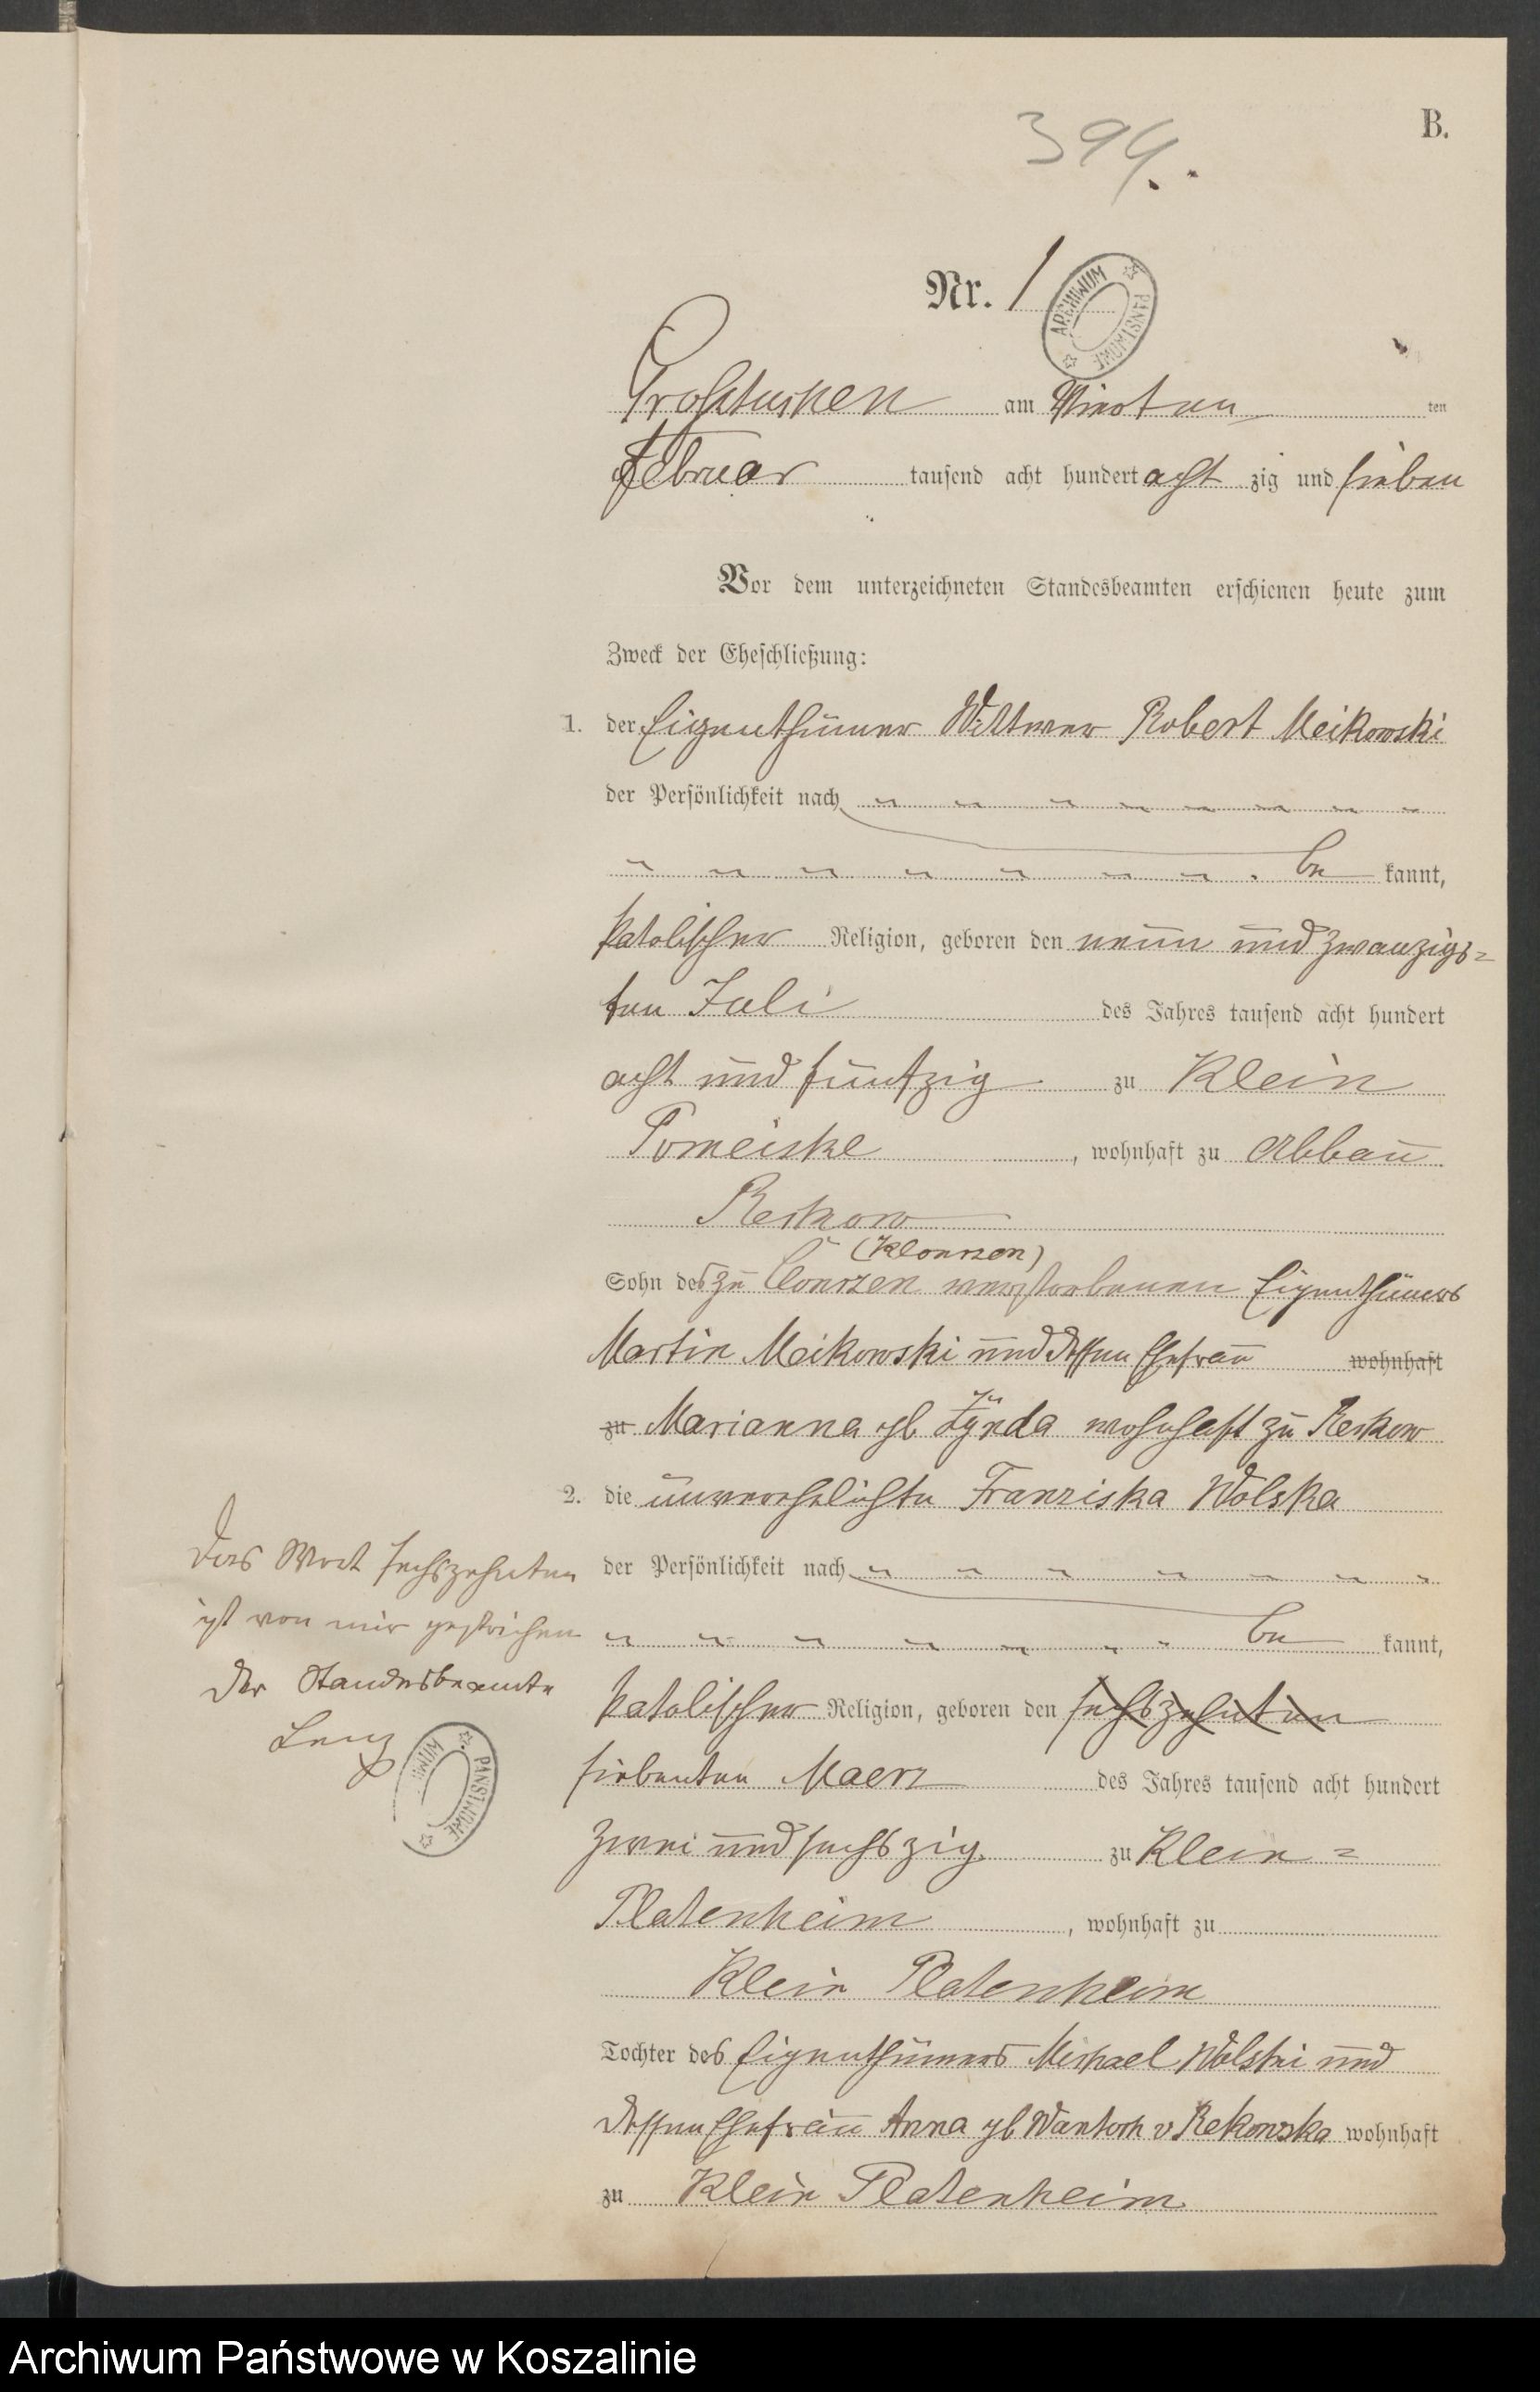 394.
B.
Nr. 1
ARCHIWUM PAŃSTWOWE
Groß Tuchen am Vierten ten
Februar tausend acht hundert acht zig und sieben
Vor dem unterzeichneten Standesbeamten erschienen heute zum
Zweck der Eheschließung:
1. der Eigenthümer Wittwer Robert Meikowski
der Persönlichkeit nach
be kannt,
katolischer Religion, geboren den neun und zwanzigs=
ten Juli des Jahres tausend acht hundert
acht und fünfzig zu Klein
Pomeiske, wohnhaft zu Abbau
Reckow
(Klonczen)
Sohn des zu Clonczen verstorbenen Eigenthümers
Martin Meikowski und dessen Ehefrau wohnhaft
zu Marianna gb Zynda wohnhaft zu Reckow
2. die unverehelichte Franziska Wolska
der Persönlichkeit nach
be kannt,
katolischer Religion, geboren den sechszehnten
siebenten Maerz des Jahres tausend acht hundert
zwei und sechszig zu Klein=
Platenheim, wohnhaft zu
Klein Platenheim
Tochter des Eigenthümers Michael Wolski und
dessen Ehefrau Anna gb Wantoch v Rekowska wohnhaft
zu Klein Platenheim
Das Wort sechszehnten
ist von mir gestrichen
Der Standesbeamte
Lenz
PAŃSTWOWE
Archiwum Państwowe w Koszalinie